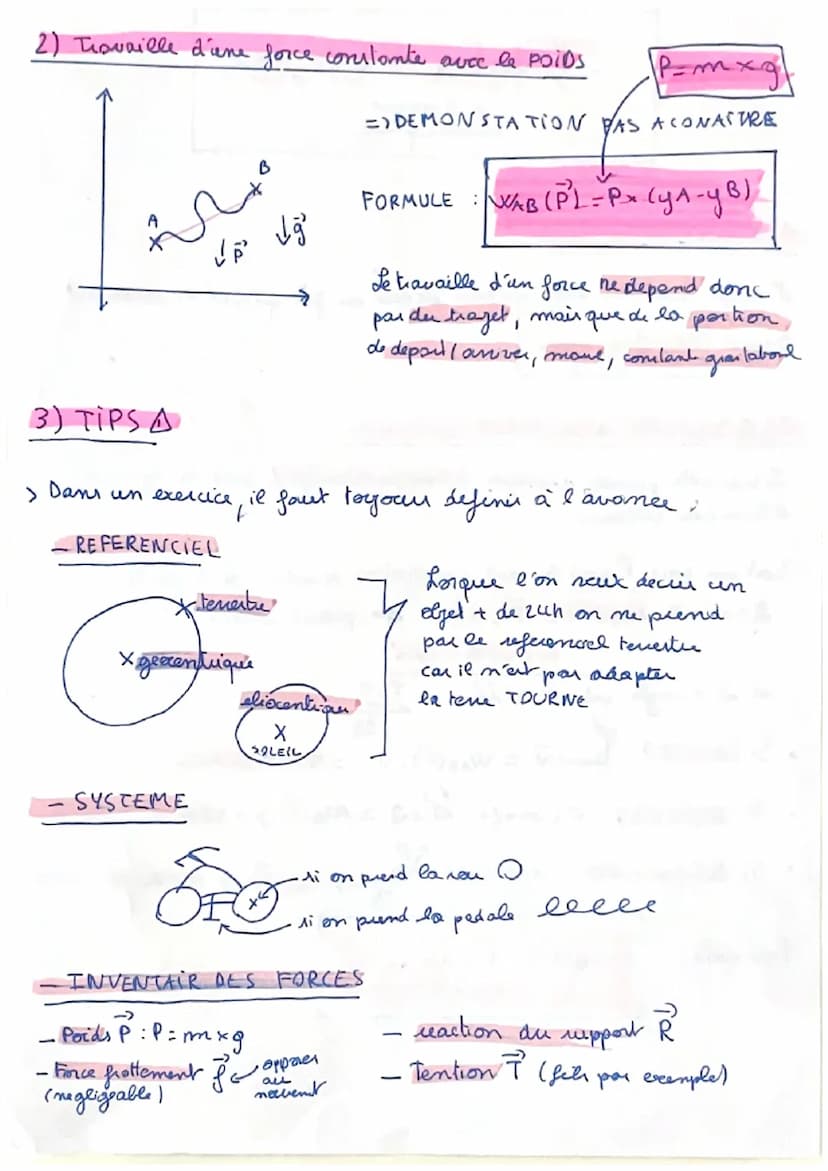 2) Travaille d'une force constante avec le POIDS
P = m x g
=> DEMONSTATION PAS A CONAITRE
B
A
P
g
FORMULE : WAB (P) = P x (yA - yB)
Le travaille d'un force ne depend donc
pas du trajet, mais que de la position
de depart / arriver, masse, constant gravitationel
3) TIPS ⚠
> Dans un exercice, il faut toujours definir à l'avance :
- REFERENCIEL
terrestre
geocentrique
eliocentrique
SOLEIL
Lorque l'on veux decrir un
objet + de 24h on ne prend
pas le referenciel terrestre
car il n'est pas adapter
la terre TOURNE
- SYSTEME
si on prend la rou
si on prend la pedale
- INVENTAIR DES FORCES
- Poids P : P = m x g
- Force frottement f
opposer
au
mouvement
(negligeable)
- reaction du support R
- Tention T (fils par exemple)